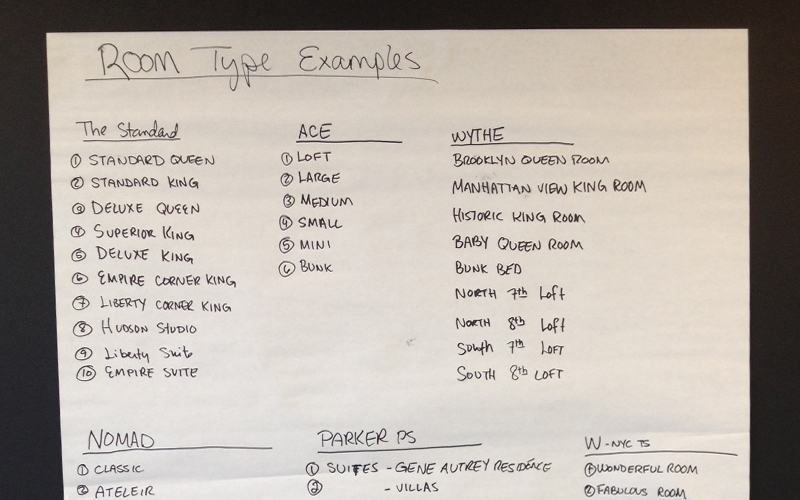 Room Type Examples
The Standard
① STANDARD QUEEN
② STANDARD KING
③ DELUXE QUEEN
④ SUPERIOR KING
⑤ DELUXE KING
⑥ EMPIRE CORNER KING
⑦ LIBERTY CORNER KING
⑧ HUDSON STUDIO
⑨ Liberty Suite
⑩ EMPIRE SUITE
ACE
① LOFT
② LARGE
③ MEDIUM
④ SMALL
⑤ MINI
⑥ BUNK
WYTHE
BROOKLYN QUEEN ROOM
MANHATTAN VIEW KING ROOM
HISTORIC KING ROOM
BABY QUEEN ROOM
BUNK BED
NORTH 7th Loft
NORTH 8th Loft
South 7th LOFT
SOUTH 8th LOFT
NOMAD
① CLASSIC
② ATELEIR
PARKER PS
① SUITES - GENE AUTREY RESIDENCE
② - VILLAS
W - NYC TS
① WONDERFUL ROOM
② FABULOUS ROOM